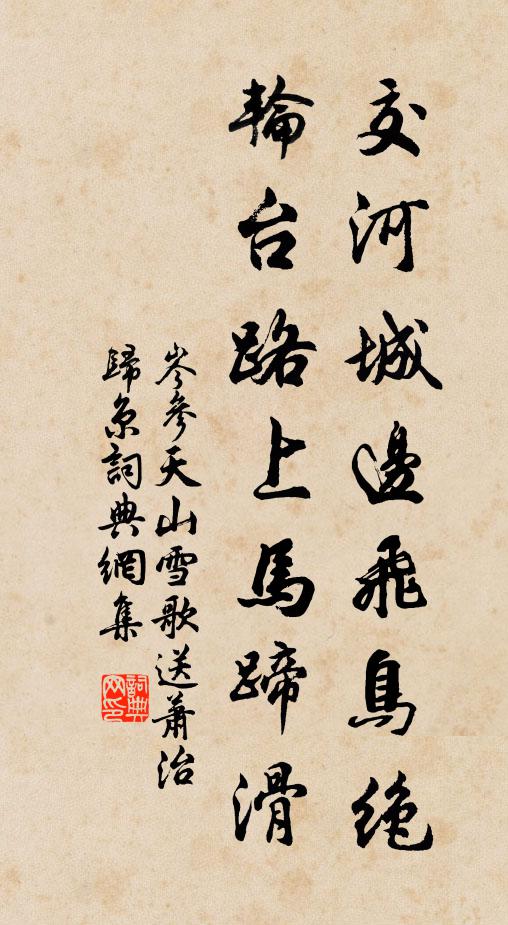 交河城邊飛鳥絕
輪台路上馬蹄滑
岑參天山雪歌送蕭治
歸京詞典網集
詞典
网印